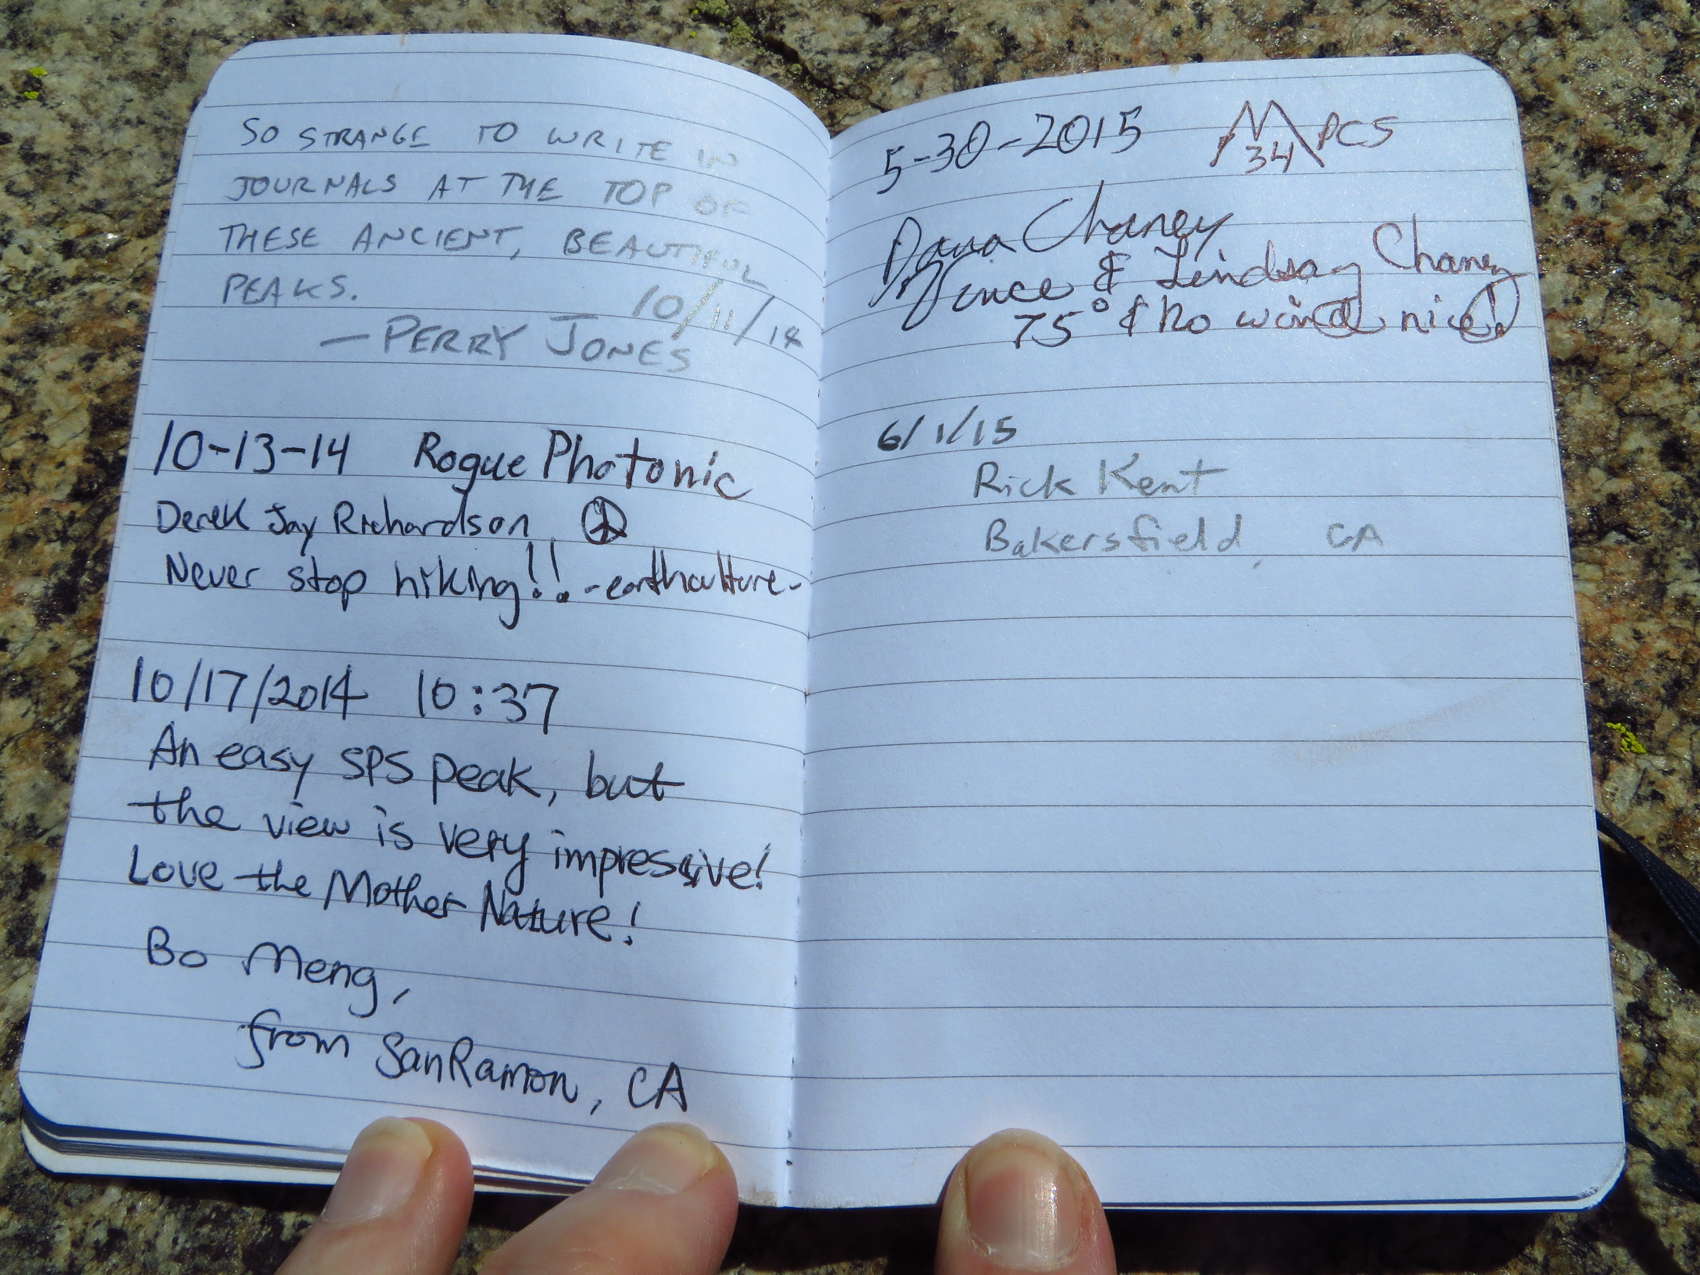 SO STRANGE TO WRITE IN
JOURNALS AT THE TOP OF
THESE ANCIENT, BEAUTIFUL
PEAKS.
10/11/14
—PERRY JONES
10-13-14 Rogue Photonic
Derek Jay Richardson
Never stop hiking!!. -earthculture-
10/17/2014 10:37
An easy SPS peak, but
the view is very impressive!
Love the Mother Nature!
Bo Meng,
from SanRamon, CA
5-30-2015 34 PCS
Dana Chaney
Vince & Lindsay Chaney
75° & No wind nice!
6/1/15
Rick Kent
Bakersfield, CA